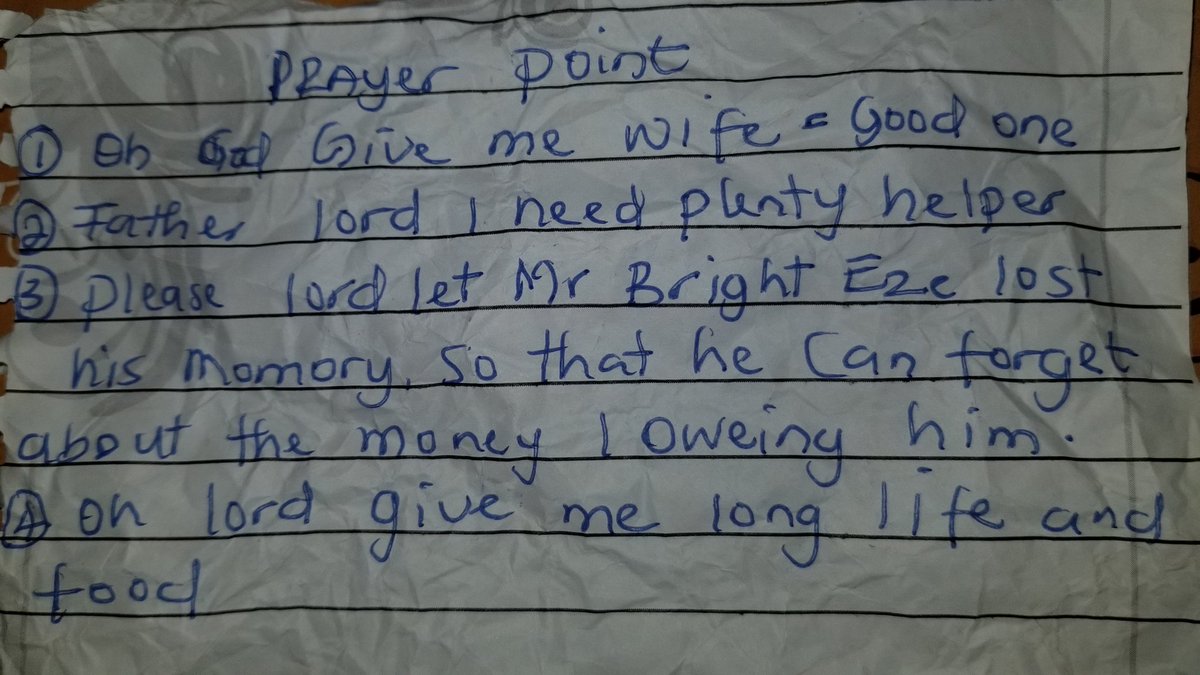 PRAyer point
① Oh God Give me wife = Good one
② Father lord I need plenty helper
③ please lord let Mr Bright Eze lost
his momory, so that he Can forget
about the money I oweing him.
④ Oh lord give me long life and
food